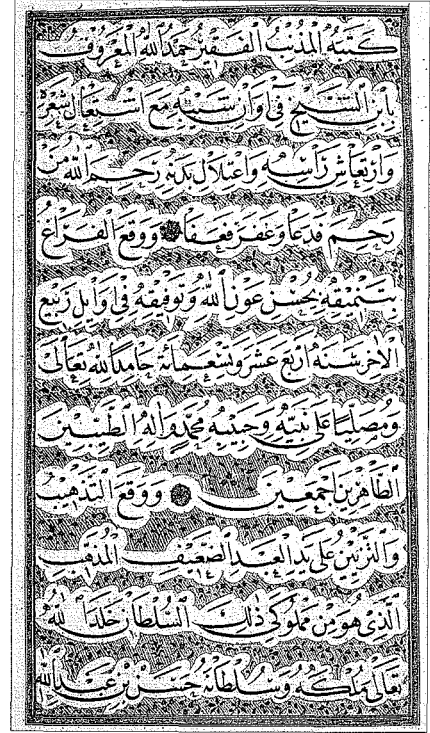 كَتَبَهُ المُذْنِبُ الفَقِيرُ حَمْدُ اللهِ المَعْرُوفُ
بِابْنِ الشَّيْخِ فِي أَوَانِ شَيْبِهِ مَعَ اشْتِعَالِ شَعْرِهِ
وَارْتِعَاشِ رَأْسِهِ وَاعْتِلَالِ بَدَنِهِ رَحِمَ اللهُ مَنْ
رَحِمَ فَدَعَا وَغَفَرَ فَعَفَا وَوَقَعَ الفَرَاغُ
بِتَنْمِيقِهِ بِحُسْنِ عَوْنِ اللهِ وَتَوْفِيقِهِ فِي أَوَايِلِ رَبِيعِ
الآخِرِ سَنَةَ أَرْبَعَ عَشَرَ وَتِسْعَمِائَةٍ حَامِدًا لِلهِ تَعَالَى
وَمُصَلِّيًا عَلَى نَبِيِّهِ وَحَبِيبِهِ مُحَمَّدٍ وَآلِهِ الطَّيِّبِينَ
الطَّاهِرِينَ أَجْمَعِينَ وَوَقَعَ التَّذْهِيبُ
وَالتَّزْيِينُ عَلَى يَدِ العَبْدِ الضَّعِيفِ المُذَهِّبِ
الَّذِي هُوَ مِنْ مَمْلُوكِي ذَلِكَ السُّلْطَانِ خَلَّدَ اللهُ
تَعَالَى مُلْكَهُ وَسُلْطَانَهُ حَسَنِ بْنِ عَبْدِ اللهِ